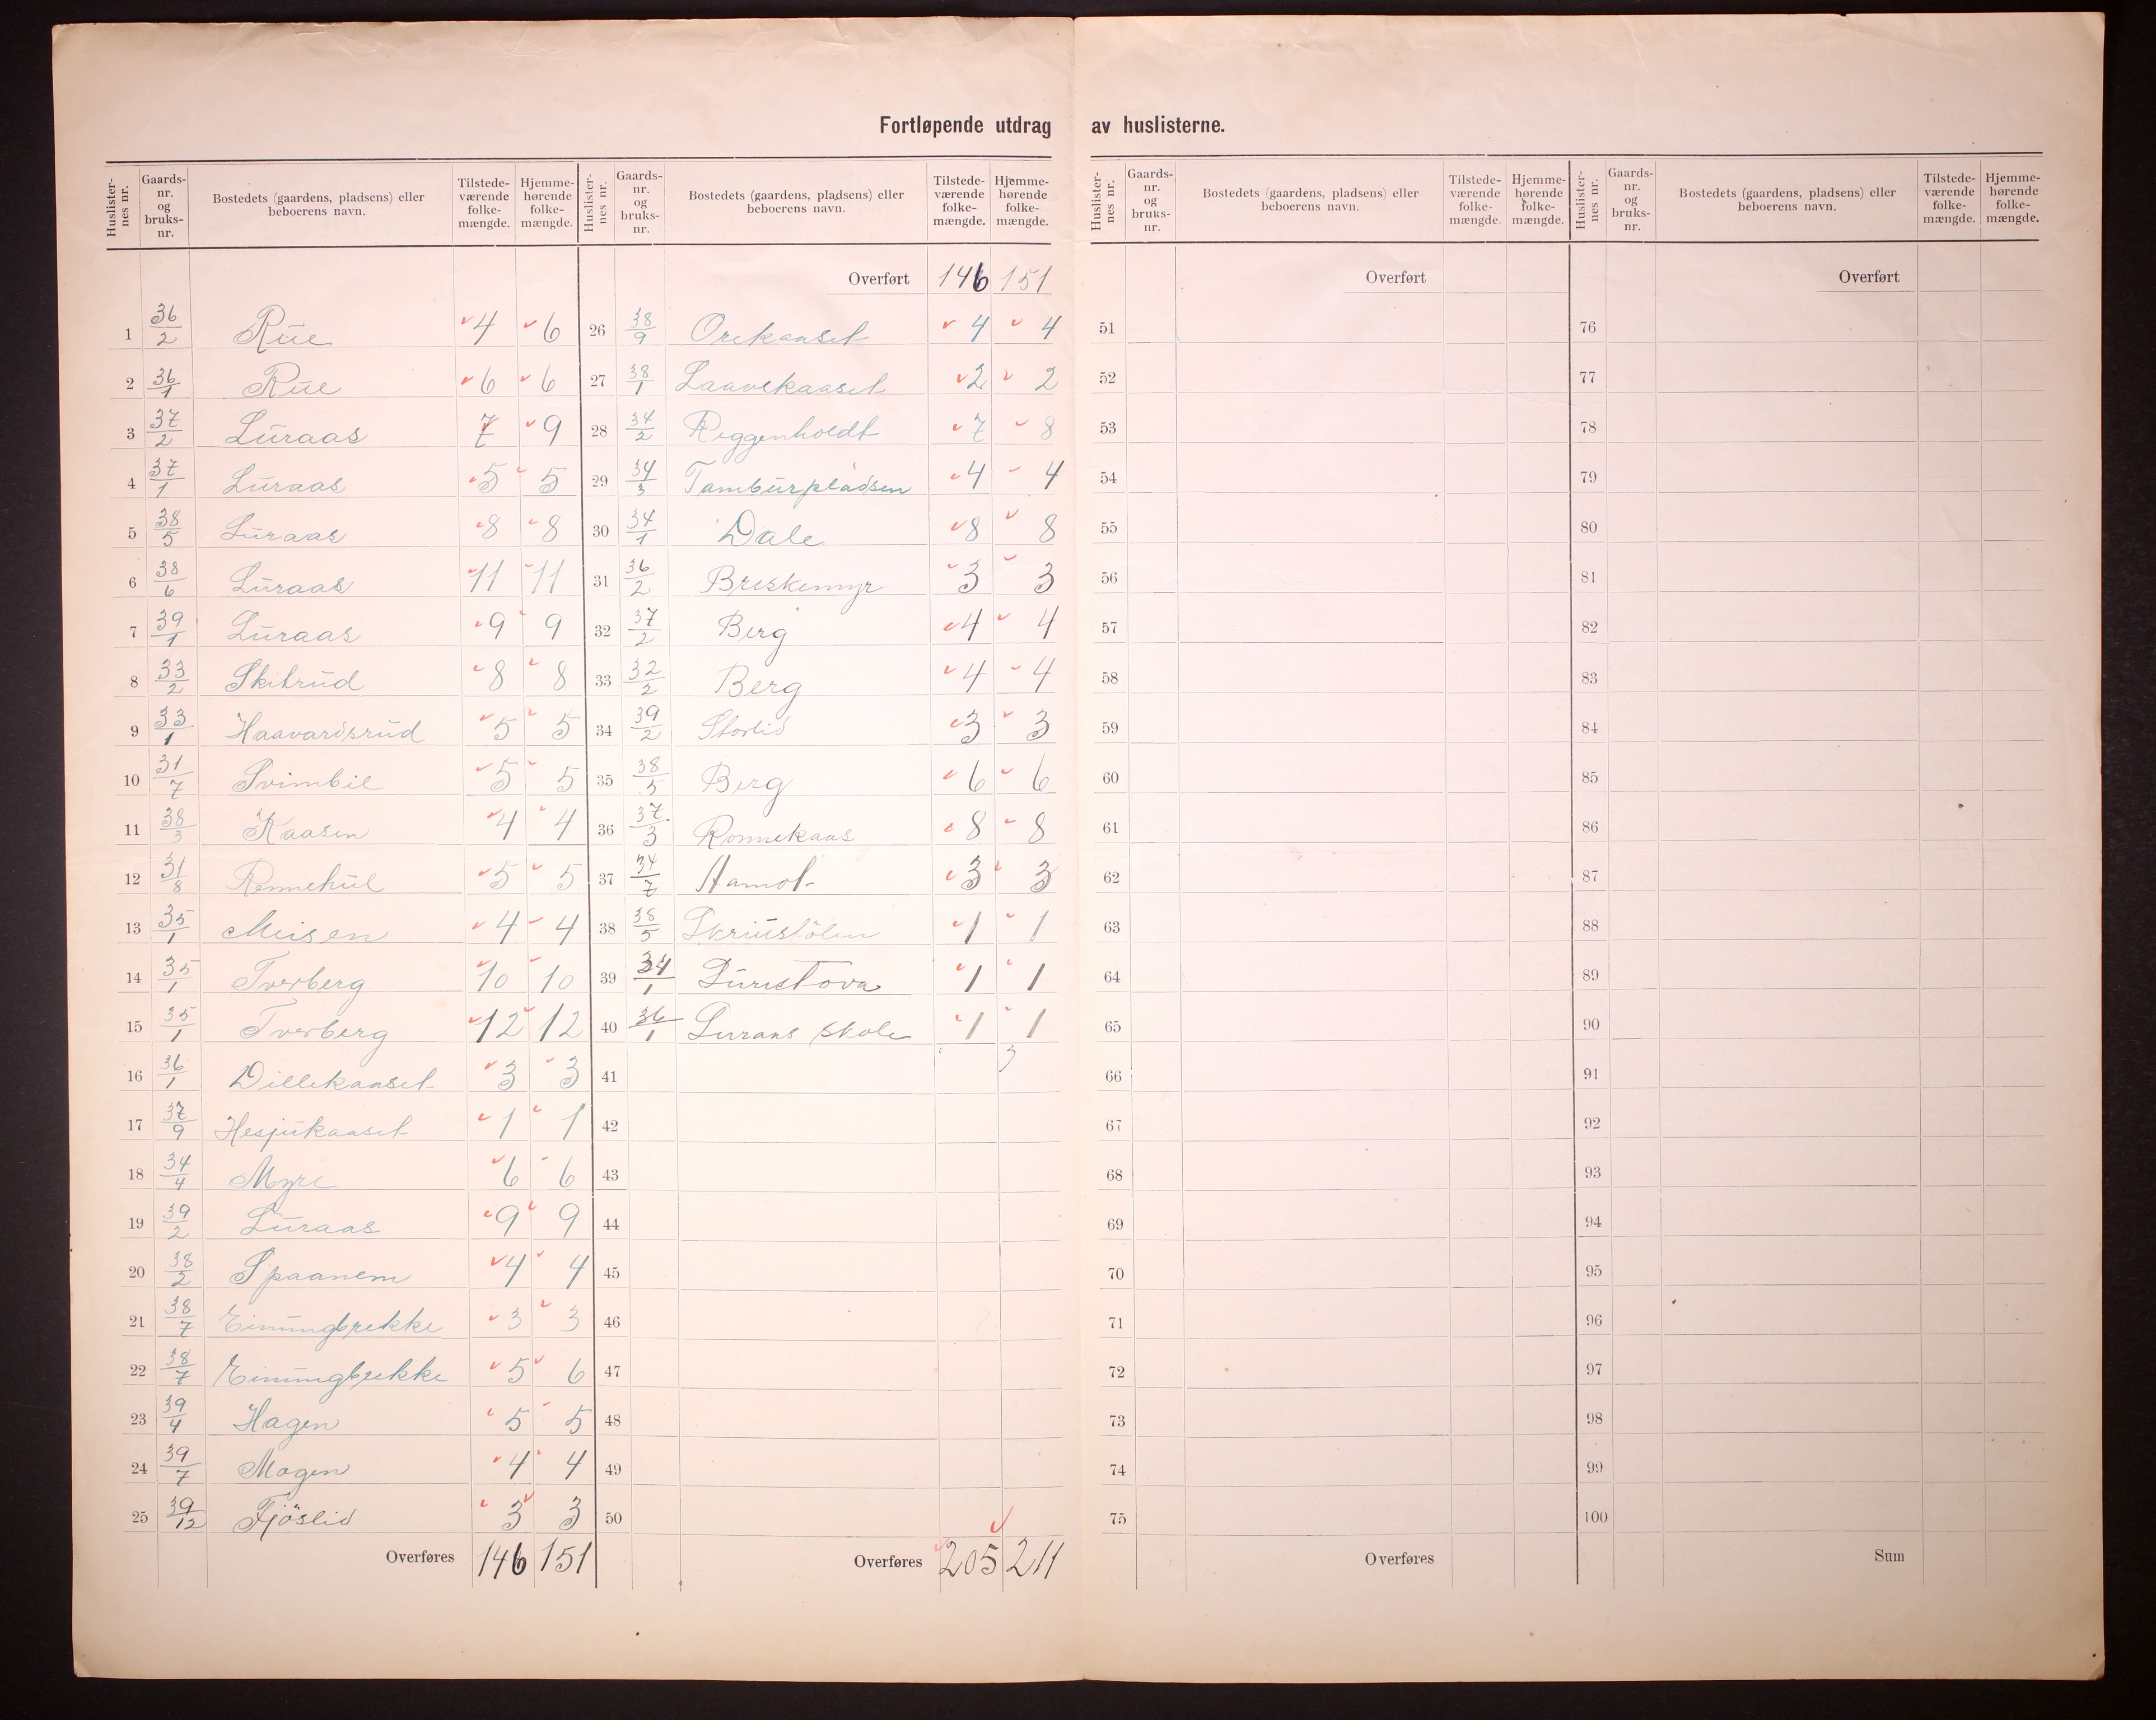 Fortløpende utdrag av huslisterne.
Huslisternes nr. Gaards-nr. og bruks-nr. Bostedets (gaardens, pladsens) eller beboerens navn. Tilstedeværende folkemængde. Hjemmehørende folkemængde.
1 36/2 Rüe 4 6
2 36/1 Rüe 6 6
3 37/2 Lüraas 7 9
4 37/1 Lüraas 5 5
5 38/5 Lüraas 8 8
6 38/6 Lüraas 11 11
7 39/1 Lüraas 9 9
8 33/2 Skibrüd 8 8
9 33/1 Haavardsrüd 5 5
10 31/7 Svimbil 5 5
11 38/3 Kaasen 4 4
12 31/8 Rennehül 5 5
13 35/1 Meisen 4 4
14 35/1 Tverberg 10 10
15 35/1 Tverberg 12 12
16 36/1 Dillekaaset 3 3
17 37/9 Hesjükaaset 1 1
18 34/4 Myre 6 6
19 39/2 Lüraas 9 9
20 38/2 Spaanem 4 4
21 38/7 Einüngbrekke 3 3
22 38/7 Einüngbrekke 5 6
23 39/4 Hagen 5 5
24 39/7 Mogen 4 4
25 39/12 Fjöslid 3 3
Overføres 146 151
Huslisternes nr. Gaards-nr. og bruks-nr. Bostedets (gaardens, pladsens) eller beboerens navn. Tilstedeværende folkemængde. Hjemmehørende folkemængde.
Overført 146 151
26 38/9 Orekaaset 4 4
27 38/1 Laavekaaset 2 2
28 34/2 Reggenholdt 7 8
29 34/3 Tambürpladsen 4 4
30 34/1 Dale 8 8
31 36/2 Breskemyr 3 3
32 37/2 Berg 4 4
33 32/2 Berg 4 4
34 39/2 Storlid 3 3
35 38/5 Berg 6 6
36 37/3 Ronnekaas 8 8
37 34/7 Hamol 3 3
38 38/5 Skriüstölen 1 1
39 34/1 Dürestova 1 1
40 36/1 Luraas skole 1 1
41
42
43
44
45
46
47
48
49
50
Overføres 205 211
Huslisternes nr. Gaards-nr. og bruks-nr. Bostedets (gaardens, pladsens) eller beboerens navn. Tilstedeværende folkemængde. Hjemmehørende folkemængde.
Overført
51
52
53
54
55
56
57
58
59
60
61
62
63
64
65
66
67
68
69
70
71
72
73
74
75
Overføres
Huslisternes nr. Gaards-nr. og bruks-nr. Bostedets (gaardens, pladsens) eller beboerens navn. Tilstedeværende folkemængde. Hjemmehørende folkemængde.
Overført
76
77
78
79
80
81
82
83
84
85
86
87
88
89
90
91
92
93
94
95
96
97
98
99
100
Sum